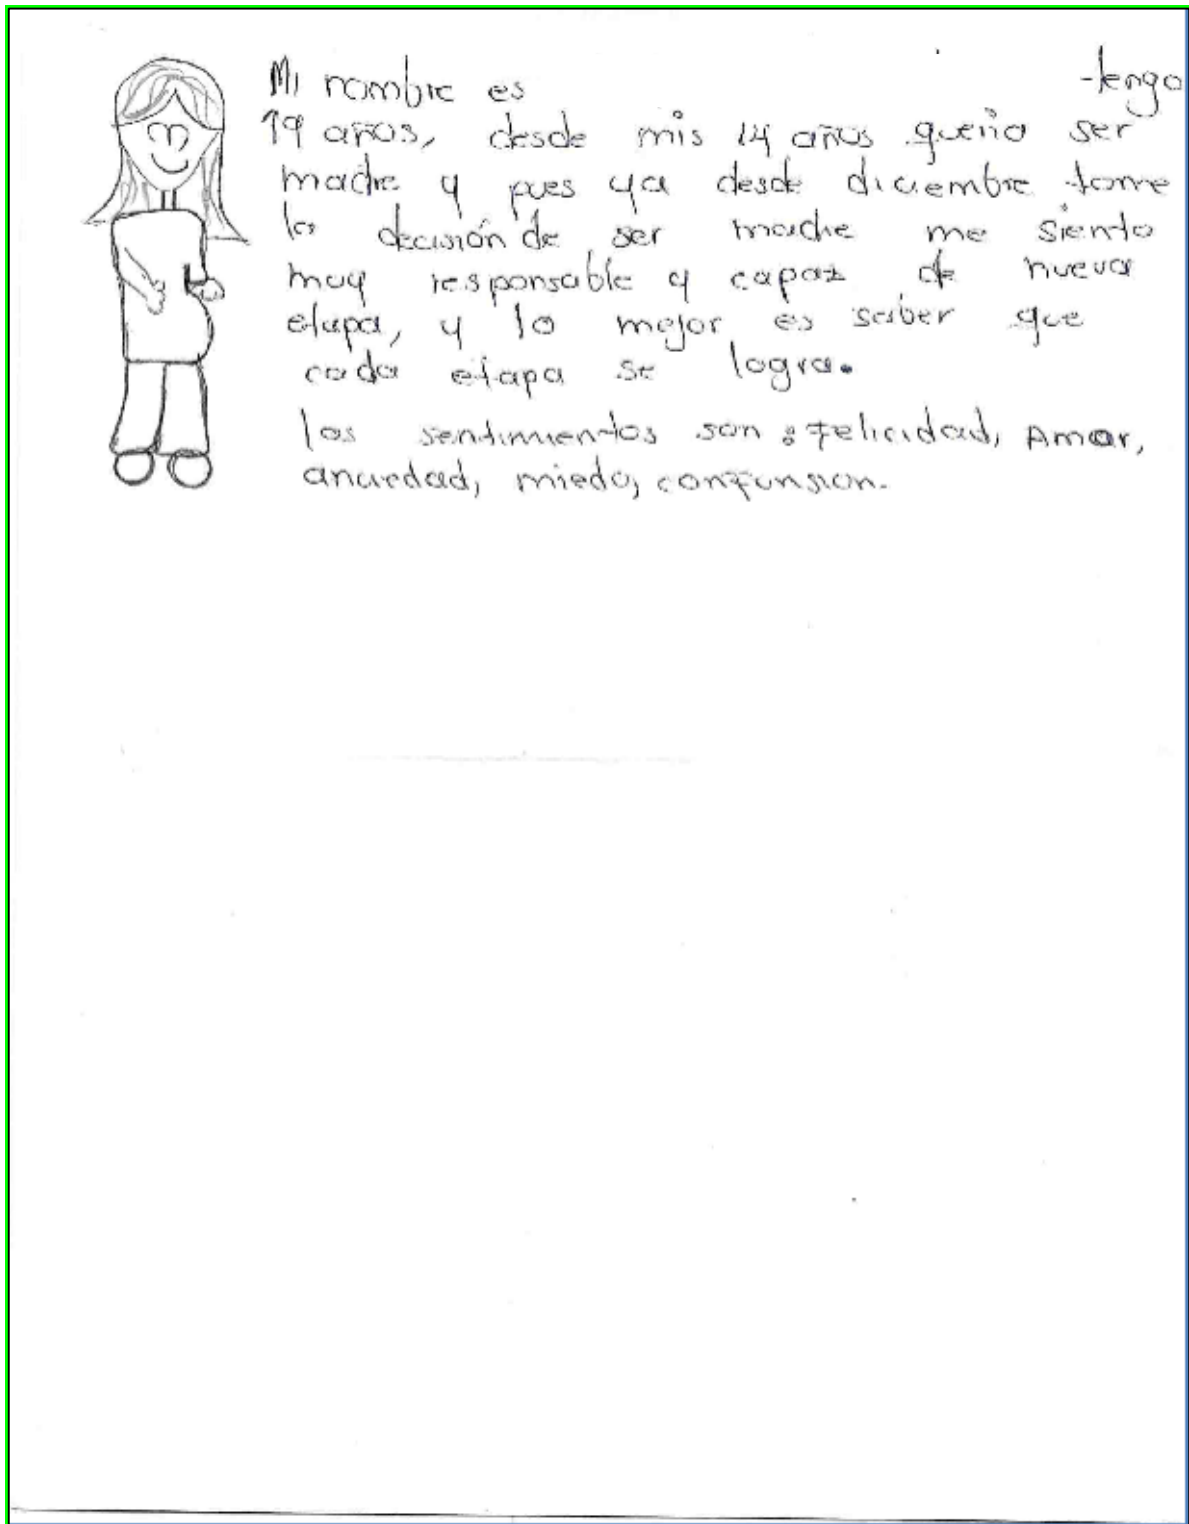 Mi nombre es tengo
19 años, desde mis 14 años queria ser
madre y pues ya desde diciembre tome
la decisión de ser madre me siento
muy responsable y capaz de nueva
etapa, y lo mejor es saber que
cada etapa se logra.
los sentimientos son: felicidad, Amor,
anciedad, miedo, confunsion.